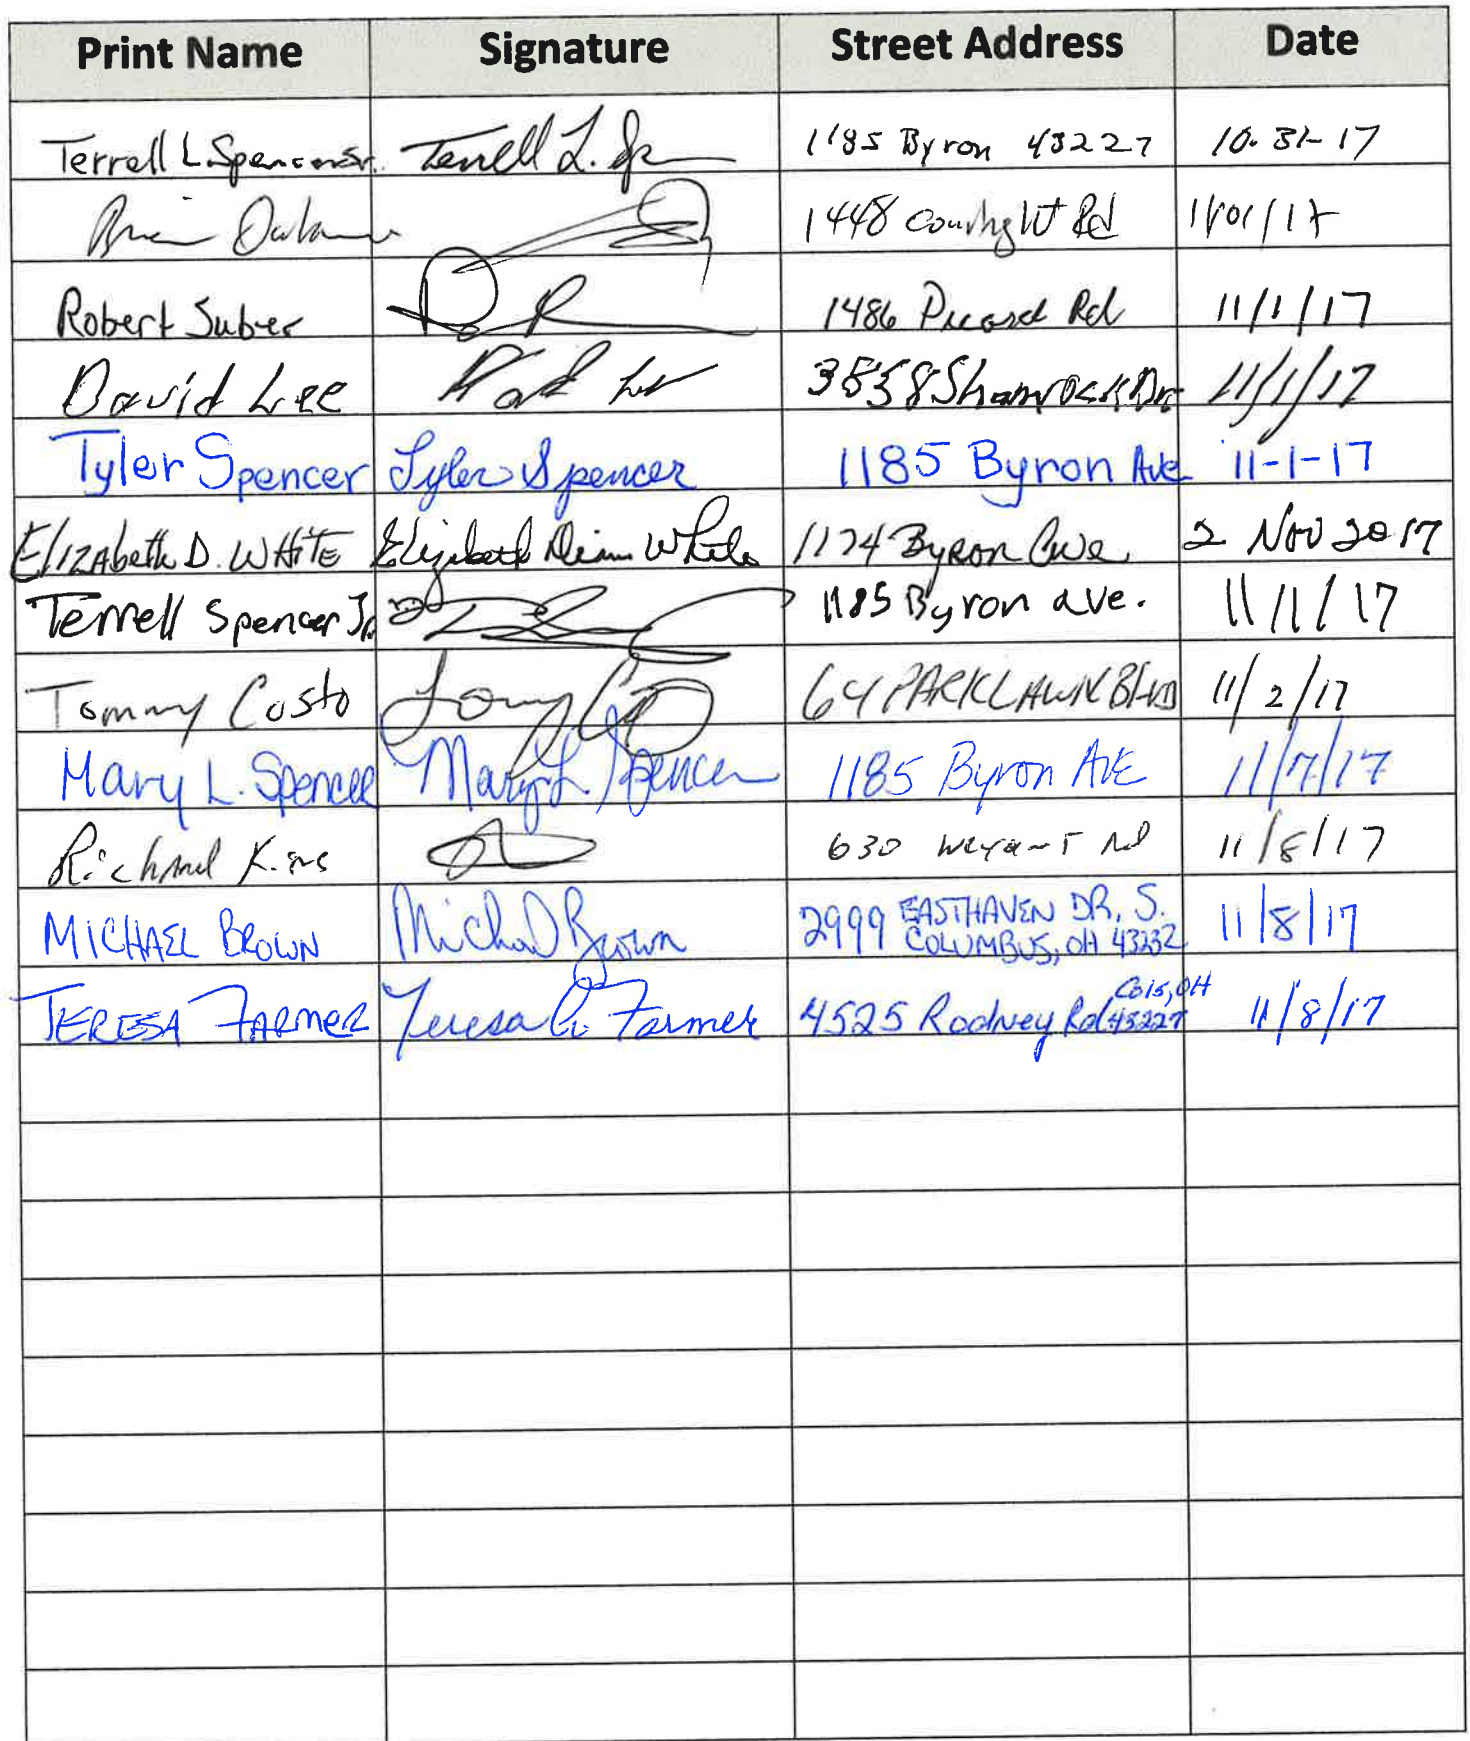 Print Name Signature Street Address Date
Terrell L. Spencer Sr. Terrell L. 1185 Byron 43227 10-31-17
1448 Rd 11/01/17
Robert Suber 1486 Picard Rd 11/1/17
David Lee 3858 Shamrock Dr 11/1/17
Tyler Spencer Tyler Spencer 1185 Byron Ave 11-1-17
ElizAbeth D. WHiTE Elizabeth Diann White 1174 Byron Ave 2 Nov 2017
Terrell Spencer Jr. 1185 Byron ave. 11/1/17
Tommy Costo 64 PARKLAWN Blvd 11/2/17
Mary L. Spencer Mary L. Spencer 1185 Byron AvE 11/7/17
Richard 630 Weyant Rd 11/8/17
MICHAEL BROWN Michael Brown 2999 EASTHAVEN DR. S. 11/8/17
COLUMBUS, OH 43232
TERESA FARMER Teresa A. Farmer 4525 Rodney Rd Cols, OH 43227 11/8/17